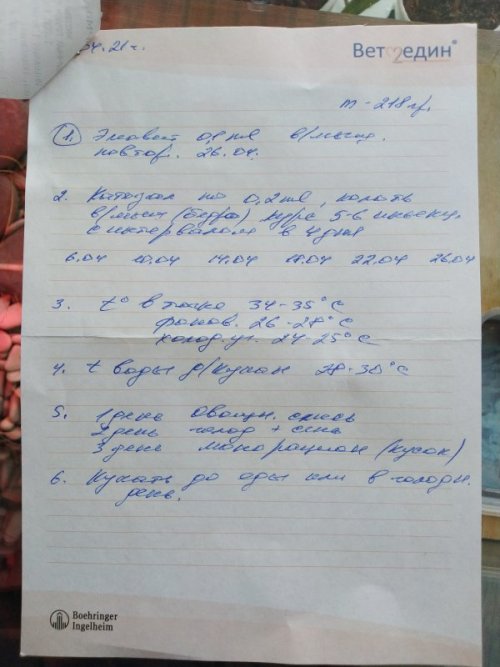 04.21г.
Ветмедин®
m - 218 гр.
1. Элеовит 0,1 мл в/мышц.
повтор. 26.04.
2. Катозал по 0,2 мл, колоть
в/мыш (бедро) курс 5-6 инъекц.
с интервалом в 4 дня
6.04 10.04 14.04 18.04 22.04 26.04
3. t° в точке 34-35°C
фонов. 26-27°C
холод. уг. 24-25°C
4. t воды д/купан 28-30°C
5. 1 день овощн. смесь
2 день голод + сено
3 день монорацион (кусок)
6. Купать до еды или в голодн.
день.
Boehringer
Ingelheim